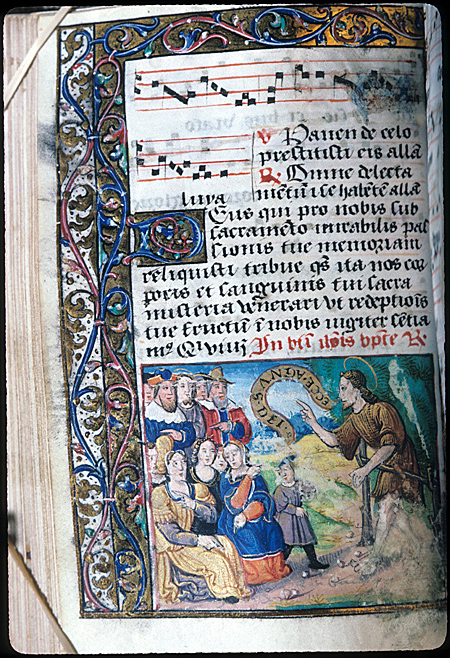 ℣ Panen de celo
prestitisti eis alla
℟ Omne delecta
mentũ ĩ se habẽtẽ alla
luya
Deus qui pro nobis sub
sacramẽto mirabilis pas
sionis tue memoriam
reliquisti tribue qs̃ ita nos cor
poris et sanguinis tui sacra
misteria venerari vt redẽptiõis
tue fructũ ĩ nobis iugiter sẽtia
mꝰ Qui viuis